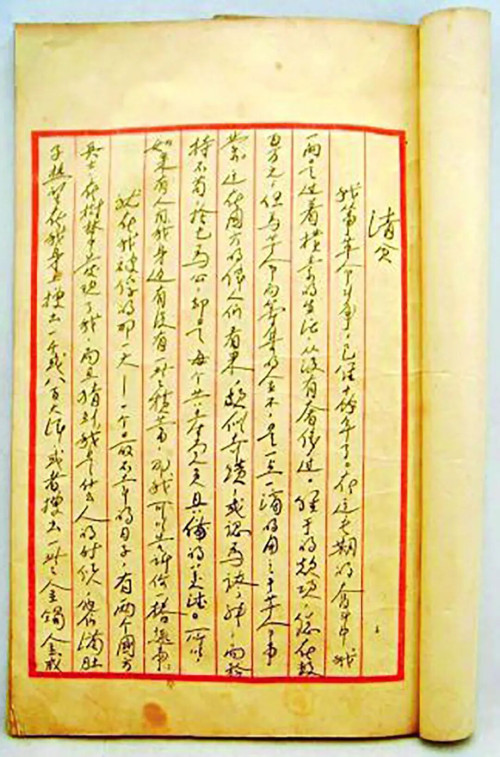 清贫
我从事革命斗争，已经十余年了。在这长期的奋斗中，我
一向是过着朴素的生活，从没有奢侈过。经手的款项，总在数
百万元；但为革命而筹集的金钱，是一点一滴的用之于革命事
业。这在国方的伟人们看来，颇似奇迹，或认为夸张；而矜
持不苟，舍己为公，却是每个共产党员具备的美德。所以，
如果有人问我身边有没有一些积蓄，那我可以告诉你一桩趣事：
就在我被俘的那一天——一个最不幸的日子，有两个国方
兵士，在树林中发现了我，而且猜到我是什么人的时候，他们满肚
子热望在我身上搜出一千或八百大洋，或者搜出一些金镯金戒